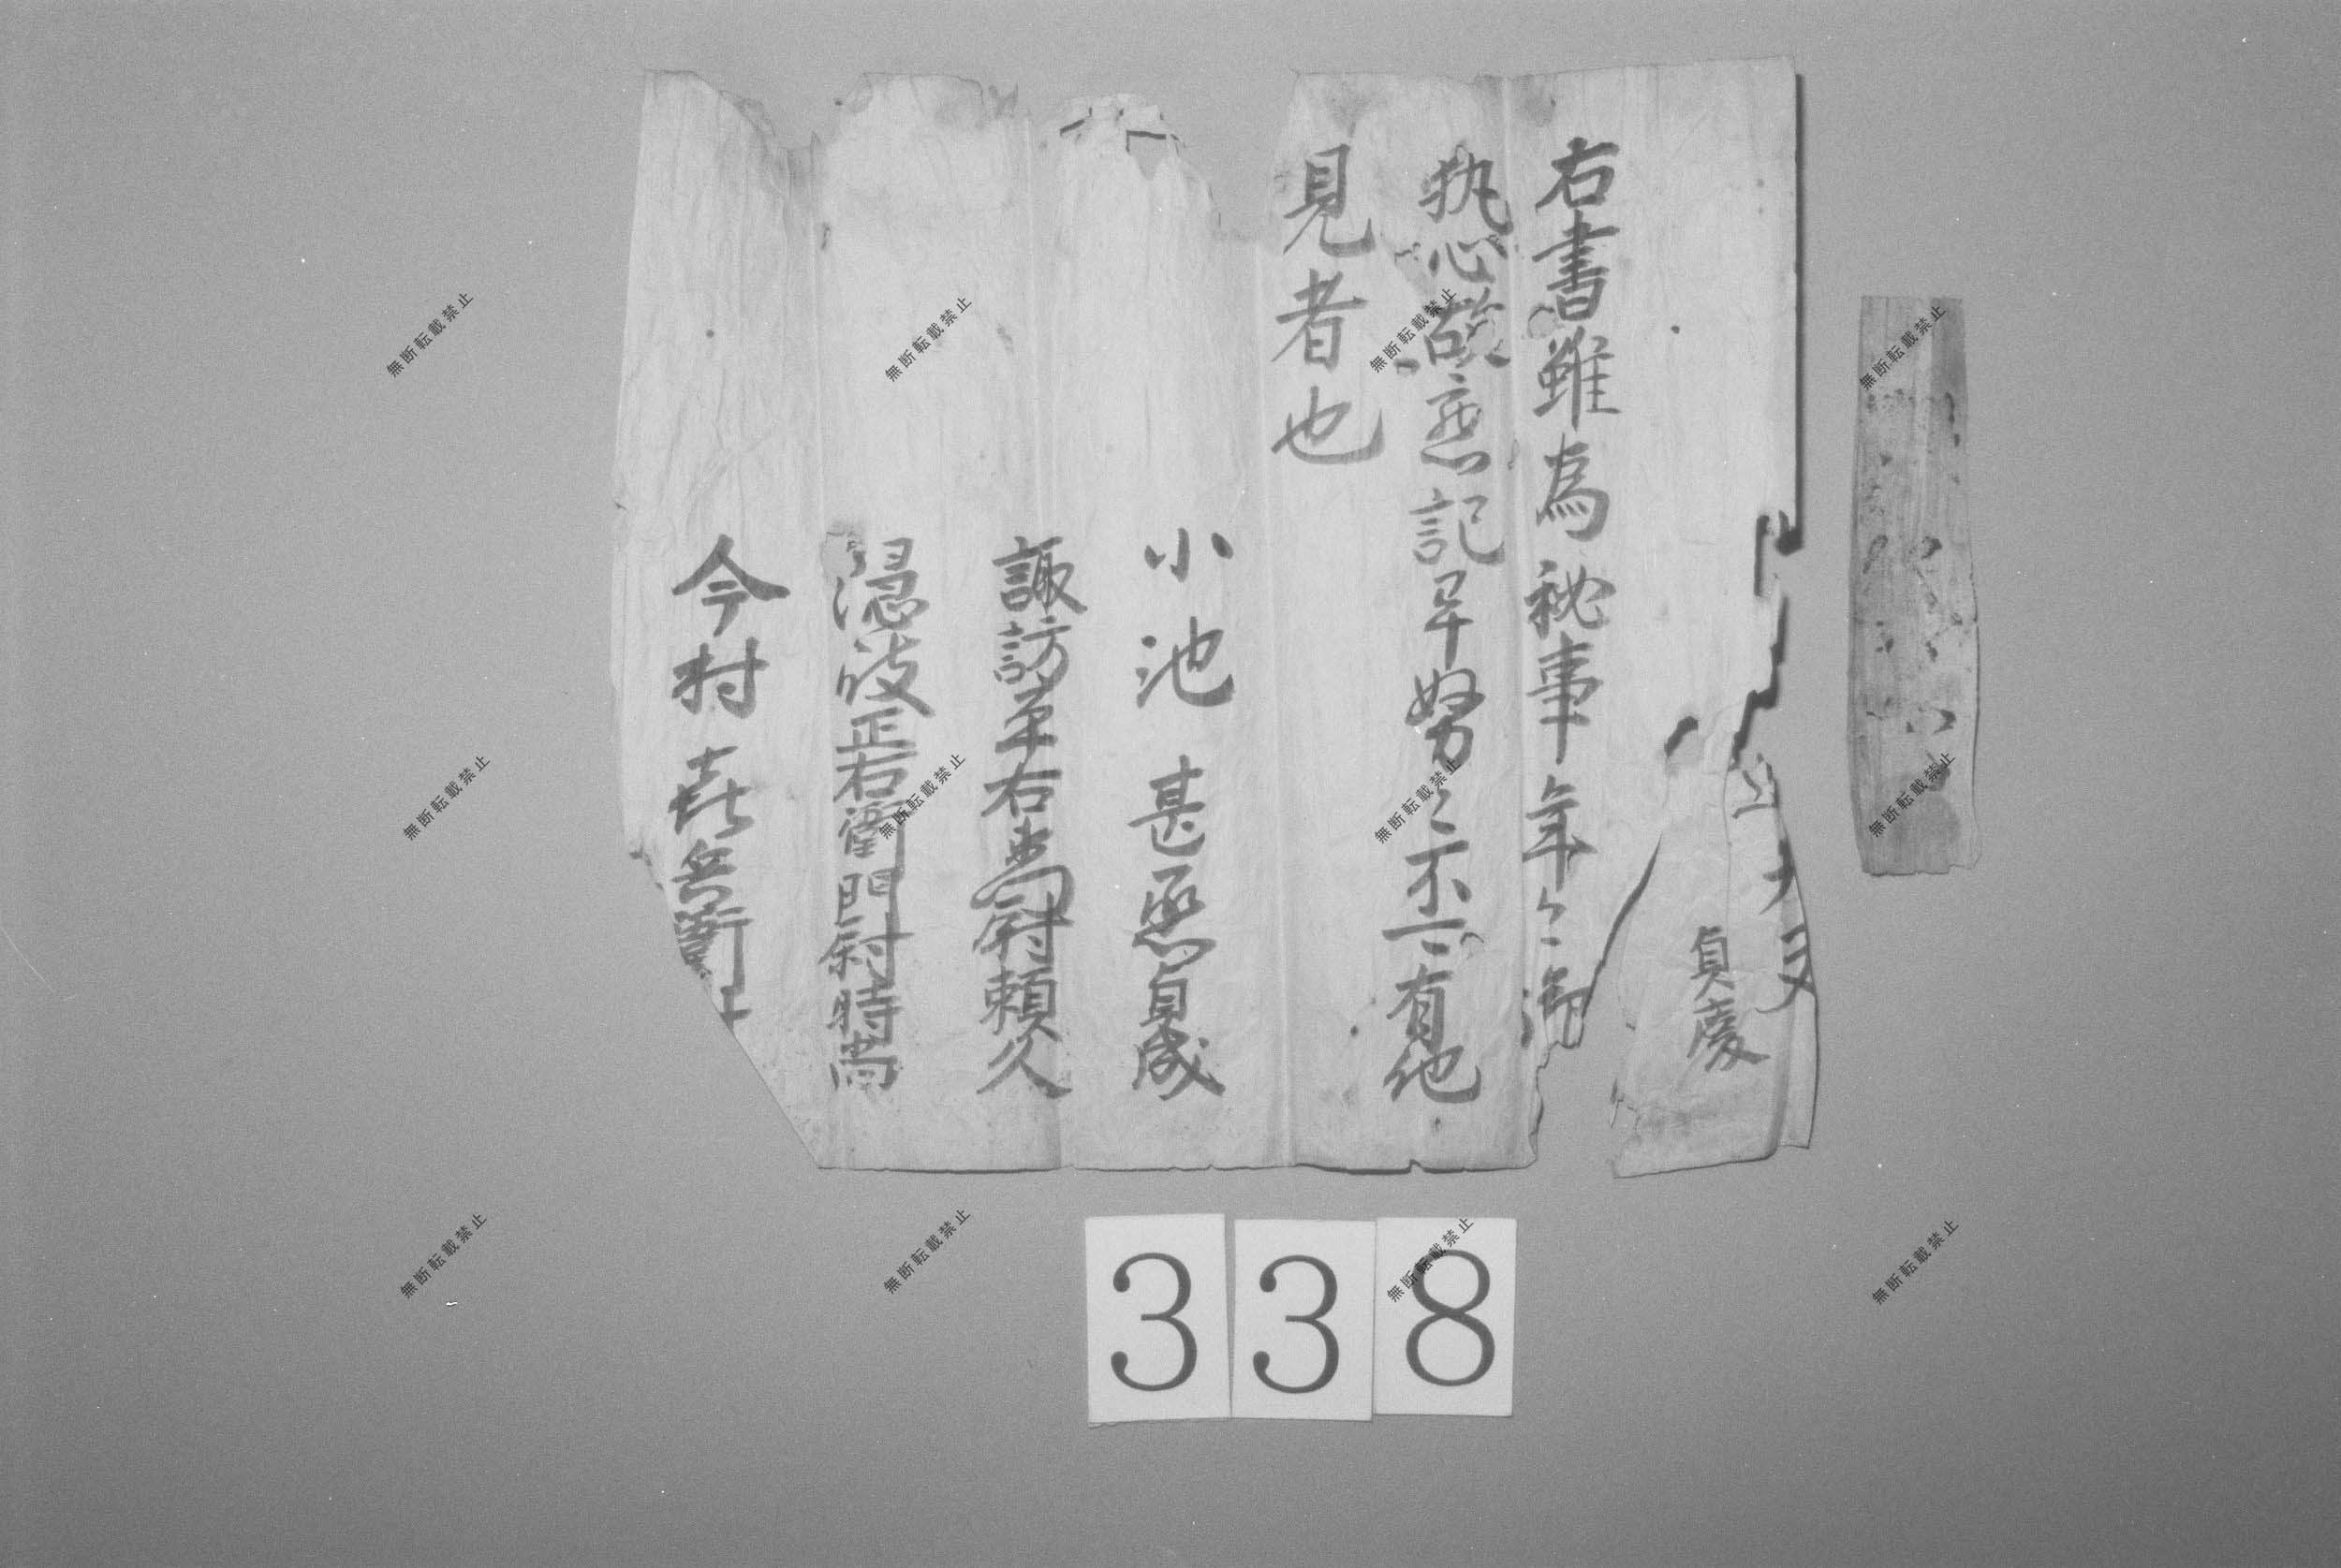 貞慶
右書雖為秘事年々御
執心故悉記畢努々不可有他
見者也
小池 甚丞貞成
諏訪 右衛門尉頼久
正右衛門尉時尚
今村 㐂兵衛
338
無断転載禁止
無断転載禁止
無断転載禁止
無断転載禁止
無断転載禁止
無断転載禁止
無断転載禁止
無断転載禁止
無断転載禁止
無断転載禁止
無断転載禁止
無断転載禁止